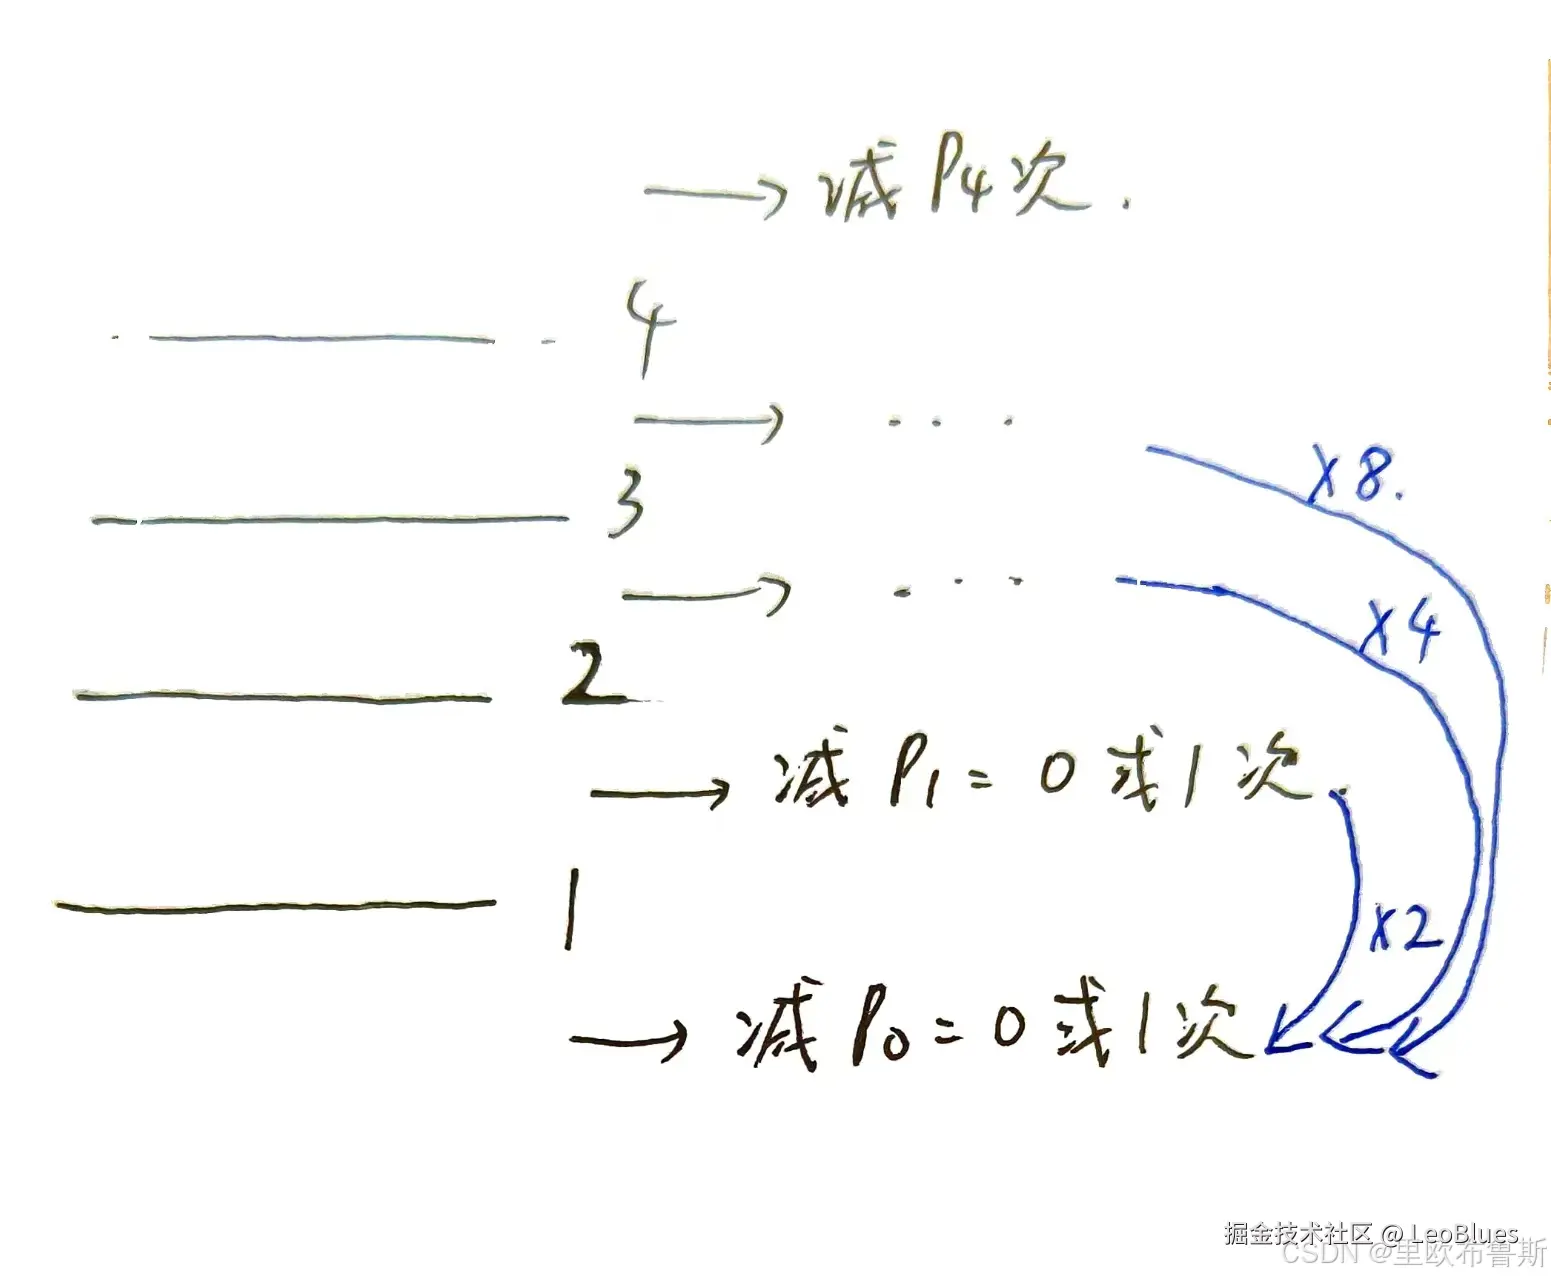 减 P4 次.
4
...
3
×8.
...
×4
2
减 P1 = 0 或 1 次.
1
×2
减 P0 = 0 或 1 次
掘金技术社区 @ LeoBlues
CSDN @里欧布鲁斯